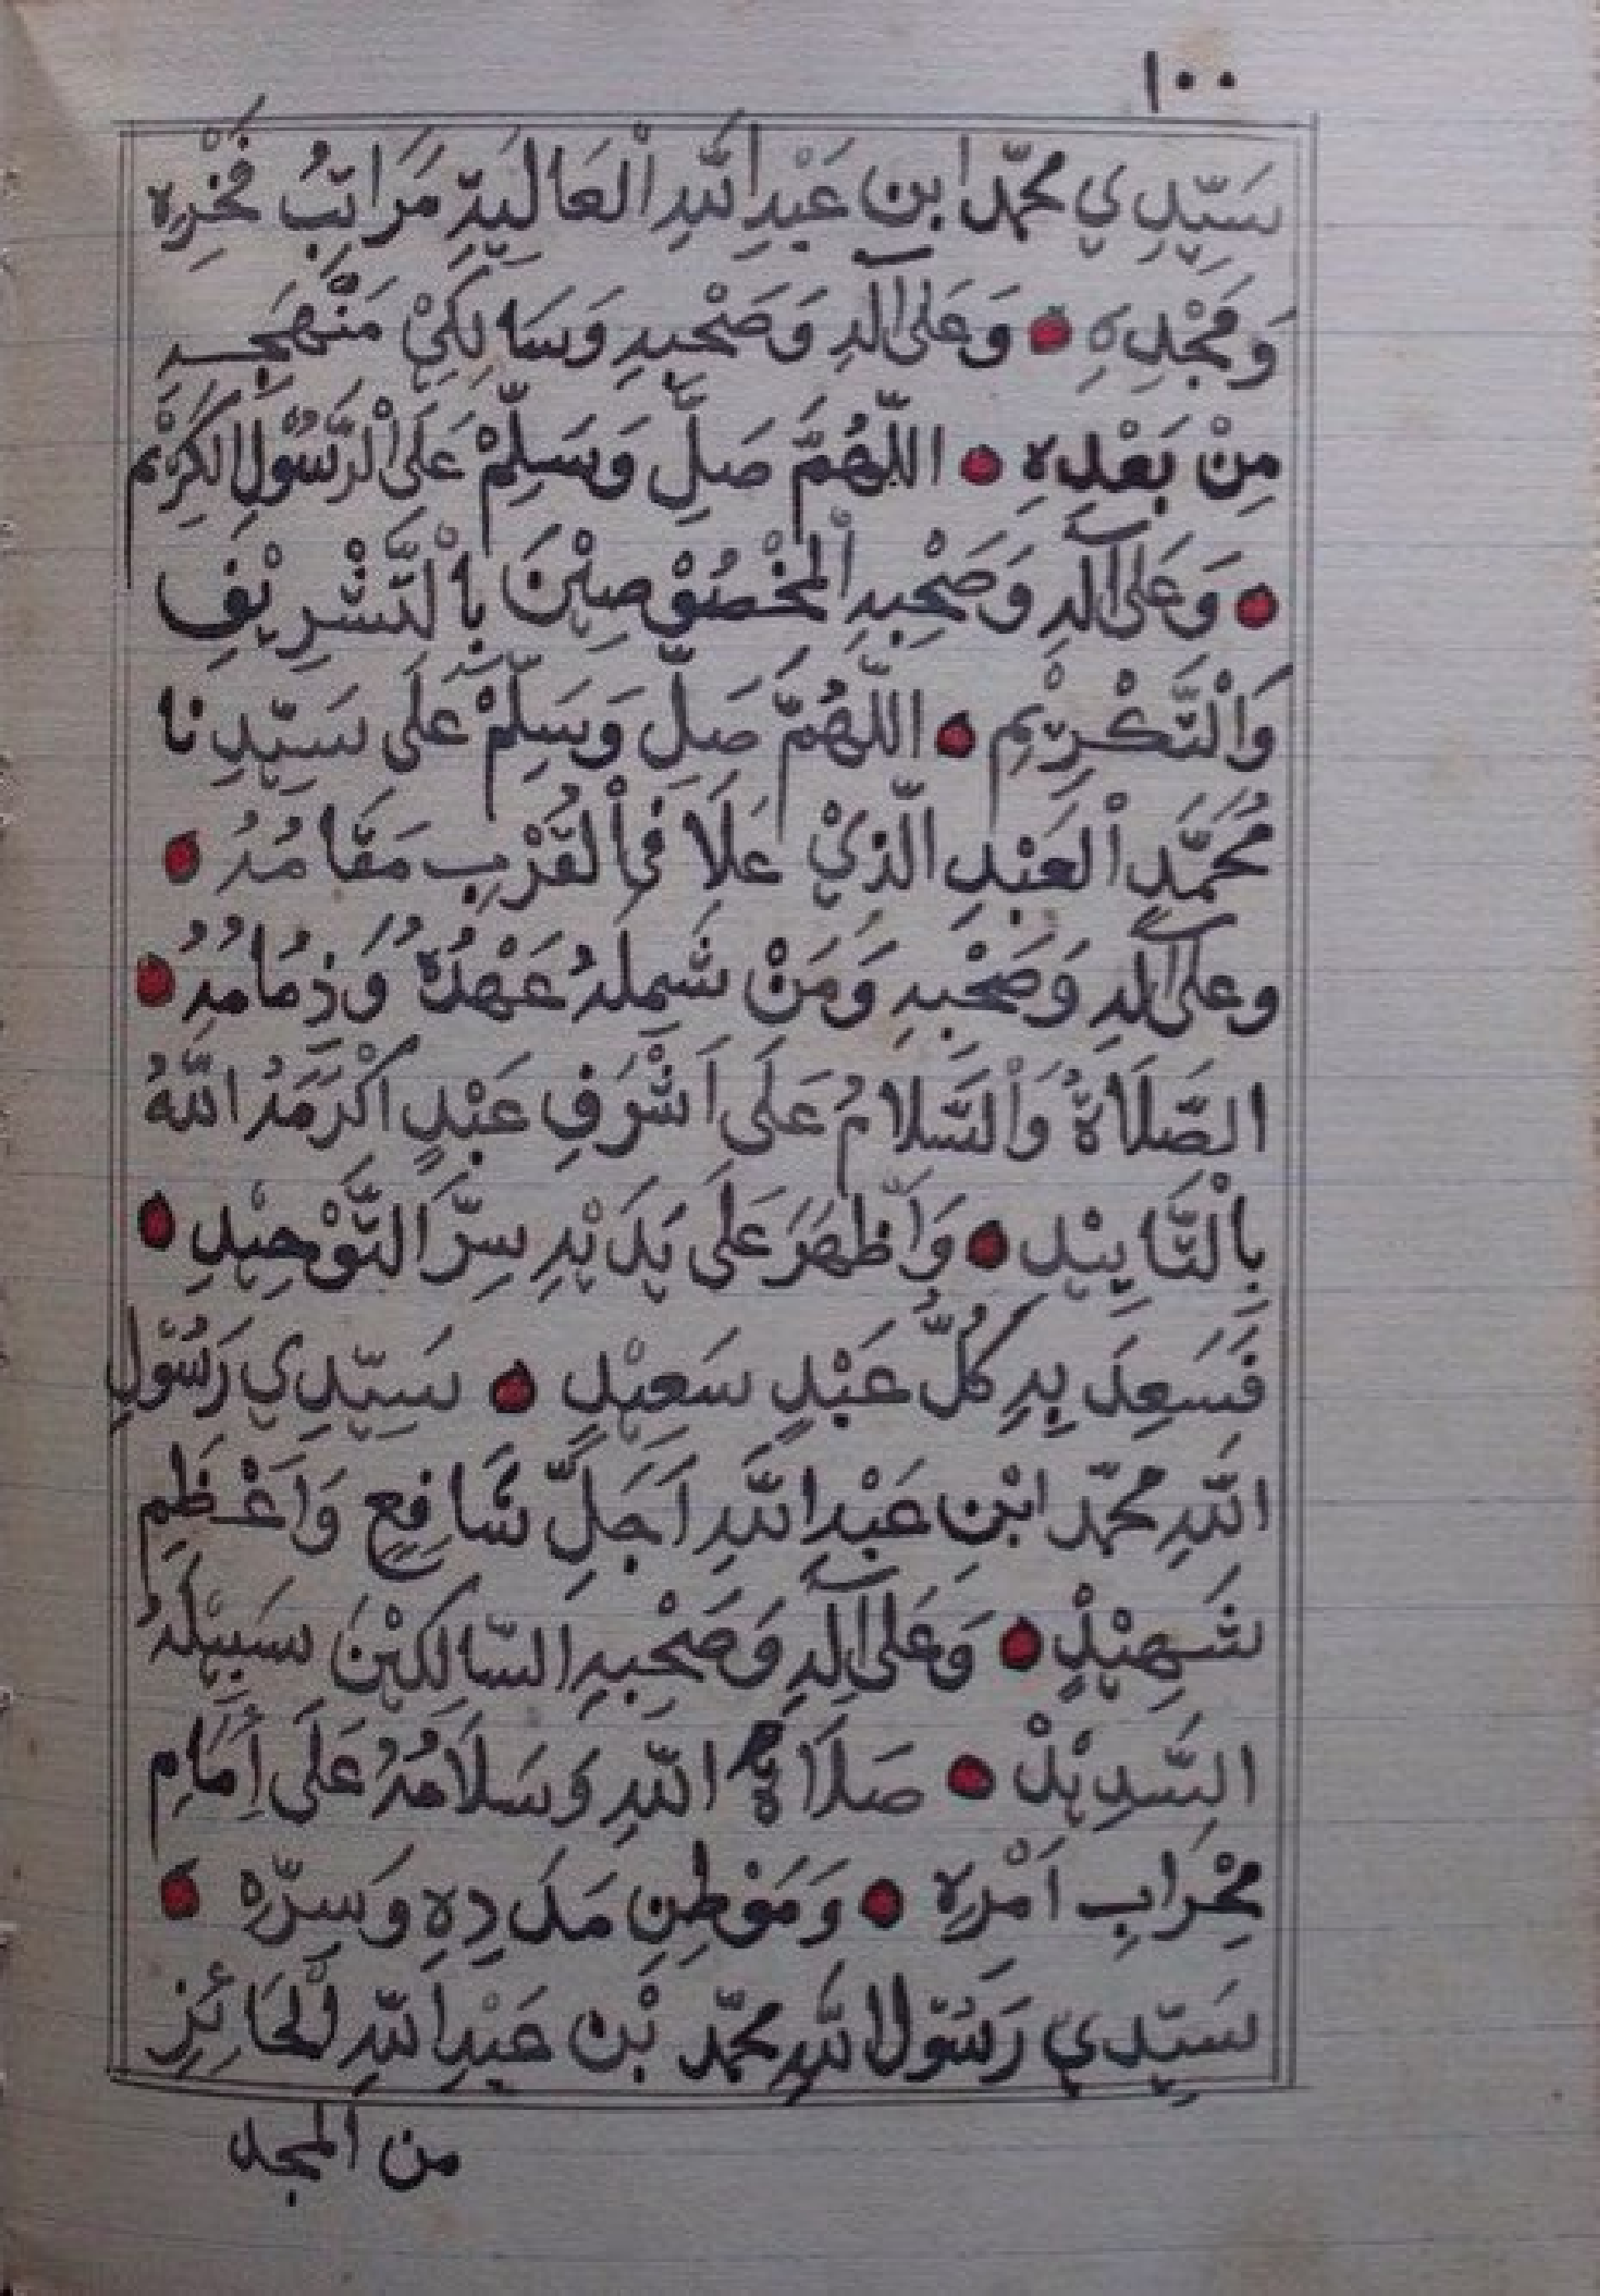 ١٠٠
سَيِّدِي مُحَمَّد ابن عَبْدِ اللهِ الْعَالِيَةِ مَرَاتِبُ فَخْرِهِ
وَمَجْدِهِ ● وَعَلَى آلِهِ وَصَحْبِهِ وَسَالِكِيْ مَنْهَجِهِ
مِنْ بَعْدِهِ ● اللّهُمَّ صَلِّ وَسَلِّمْ عَلَى الْرَّسُوْلِ الكَرِيْمِ
● وَعَلَى آلِهِ وَصَحْبِهِ الْمَخْصُوْصِيْنَ بِالْتَّشْرِيْفِ
وَالْتَّكْرِيْمِ ● اللّهُمَّ صَلِّ وَسَلِّمْ عَلَى سَيِّدِنَا
مُحَمَّدٍ الْعَبْدِ الَّذِيْ عَلَا فِي الْقُرْبِ مَقَامُهُ ●
وعَلَى آلِهِ وَصَحْبِهِ وَمَنْ شَمِلَهُ عَهْدُهُ وَذِمَامُهُ ●
الصَّلَاةُ وَالْسَّلَامُ عَلَى اَشْرَفِ عَبْدٍ اَكْرَمَهُ اللهُ
بِالْتَّايِيْدِ ● وَاَظْهَرَ عَلَى يَدَيْهِ سِرَّ الْتَّوْحِيْدِ ●
فَسَعِدَ بِهِ كُلُّ عَبْدٍ سَعِيْدٍ ● سَيِّدِي رَسُوْلِ
اللهِ مُحَمَّد ابْنِ عَبْدِ اللهِ اَجَلِّ شَافِعٍ وَاَعْظَمِ
شَهِيْدٍ ● وَعَلَى آلِهِ وَصَحْبِهِ السَّالِكِيْنَ سَبِيْلَهُ
السَّدِيْدْ ● صَلَاةُ اللهِ وَسَلَامُهُ عَلَى اِمَامِ
مِحْرَابِ اَمْرِهِ ● وَمَوْطِنِ مَدَدِهِ وَسِرِّهِ ●
سَيِّدِي رَسُوْلِ اللهِ مُحَمَّد بْنِ عَبْدِ اللهِ الْحَائِزِ
من المجد